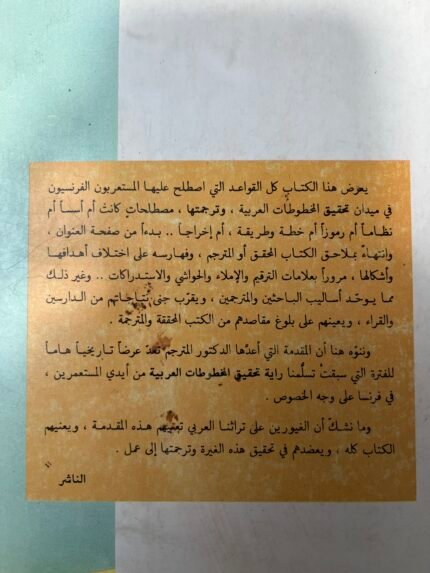 يعرض هذا الكتاب كل القواعد التي اصطلح عليها المستعربون الفرنسيون
في ميدان تحقيق المخطوطات العربية ، وترجمتها ، مصطلحاتٍ كانت أم أسساً أم
نظاماً أم رموزاً أم خطة وطريقة ، أم إخراجاً .. بدءاً من صفحة العنوان ،
وانتهاءً بملاحق الكتاب المحقق أو المترجم ، وفهارسه على اختلاف أهدافها
وأشكالها ، مروراً بعلامات الترقيم والإملاء والحواشي والاستدراكات .. وغير ذلك
مما يوحّد أساليب الباحثين والمترجمين ، ويقرّب جنى نتاجاتهم من الدارسين
والقراء ، ويعينهم على بلوغ مقاصدهم من الكتب المحققة والمترجمة .
وننوّه هنا أن المقدمة التي أعدّها الدكتور المترجم تعدّ عرضاً تاريخياً هاماً
للفترة التي سبقت تسلّمنا راية تحقيق المخطوطات العربية من أيدي المستعمرين ،
في فرنسا على وجه الخصوص .
وما نشكّ أن الغيورين على تراثنا العربي تعنيهم هذه المقدمة ، ويعنيهم
الكتاب كله ، ويعضدهم في تحقيق هذه الغيرة وترجمتها إلى عمل .
الناشر